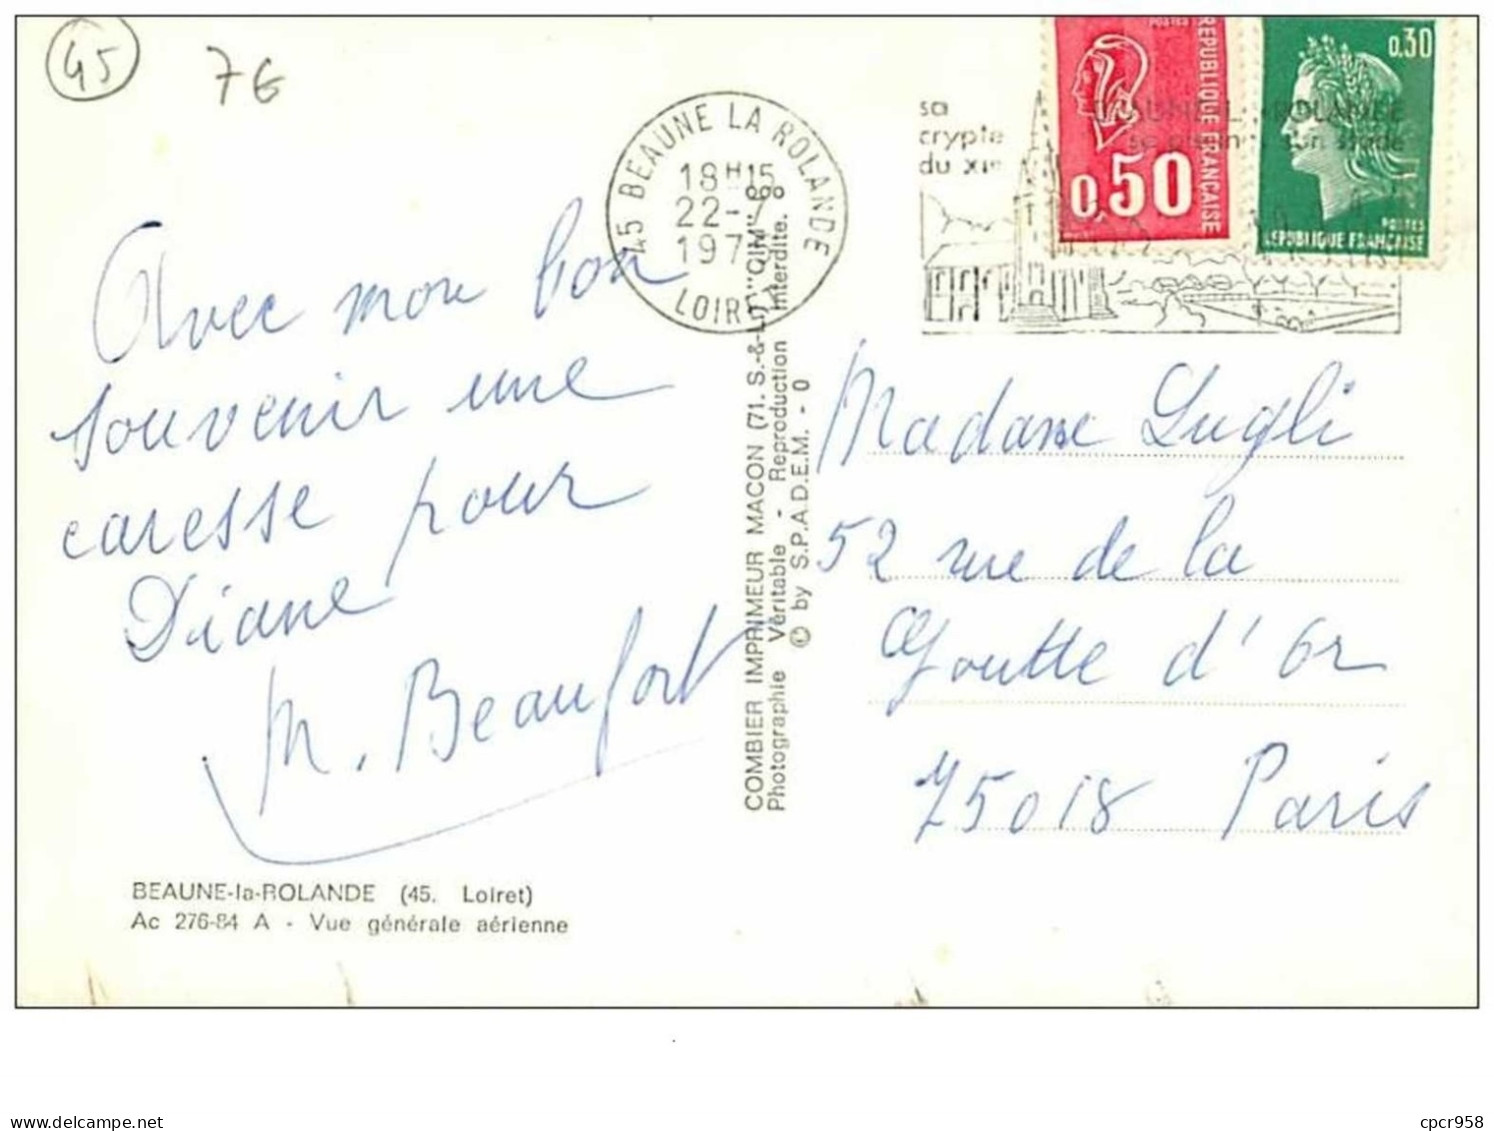 45
76
45 BEAUNE LA ROLANDE
18H15
22-7
197
LOIRET
sa
crypte
du XIe
REPUBLIQUE FRANÇAISE
POSTES
0,50
0,30
POSTES
REPUBLIQUE FRANÇAISE
Avec mon bon
souvenir une
caresse pour
Diane
M. Beaufort
COMBIER IMPRIMEUR MACON (71. S.-&-L.) "CIM"
Photographie Véritable - Reproduction Interdite.
© by S.P.A.D.E.M. - 0
Madame Lugli
52 rue de la
Goutte d'Or
75018 Paris
BEAUNE-la-ROLANDE (45. Loiret)
Ac 276-84 A - Vue générale aérienne
cpcr958